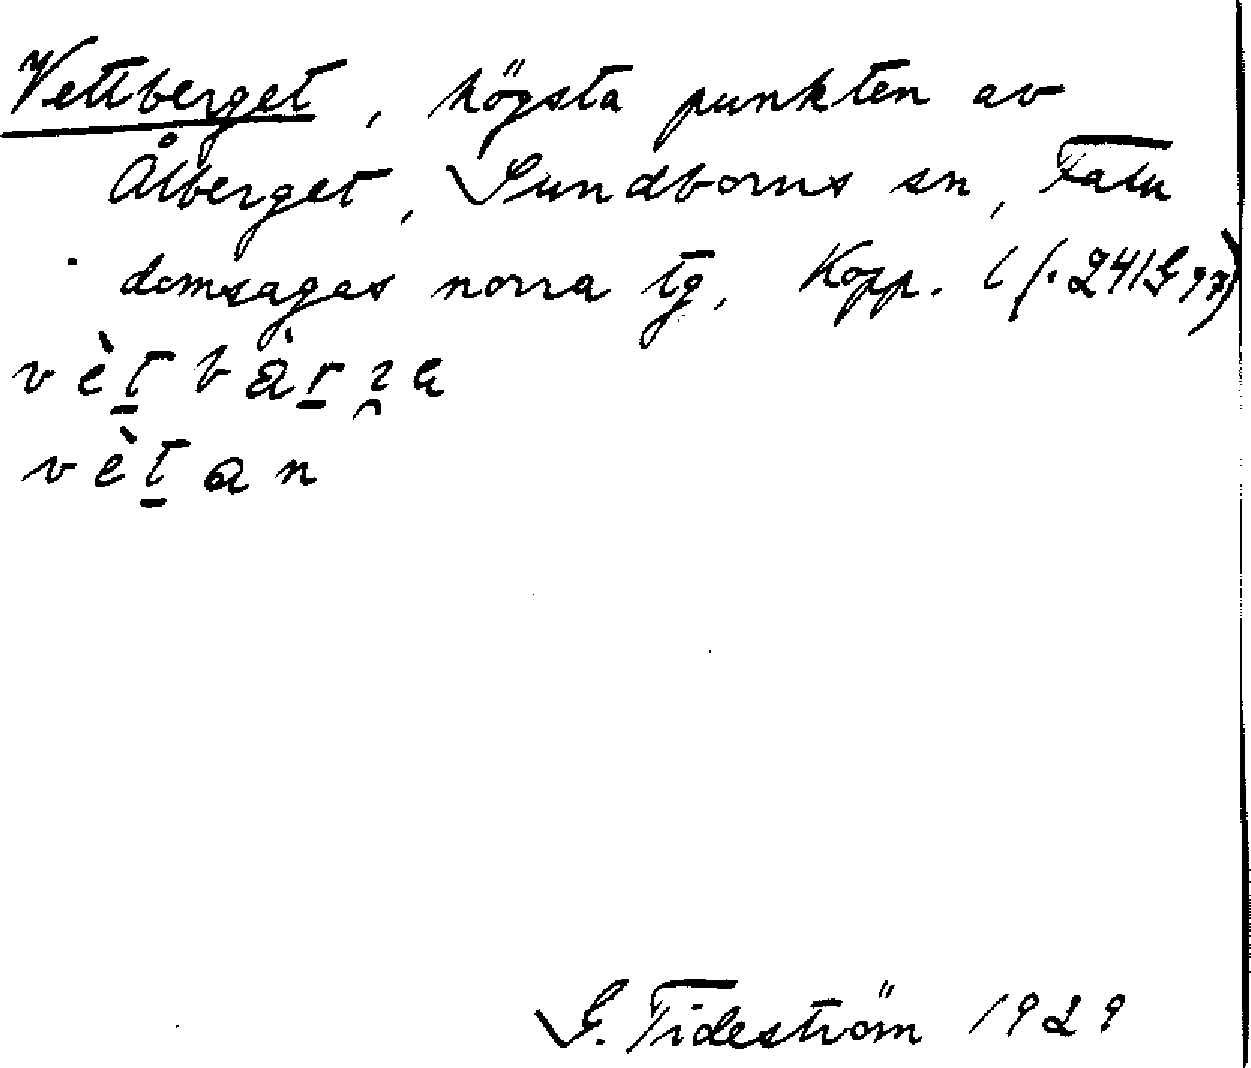 Vettberget, högsta punkten av
Ålberget, Sundborns sn, Falu
domsagas norra tg, Kopp. l
vètbärge
vètan
G. Tideström 1929